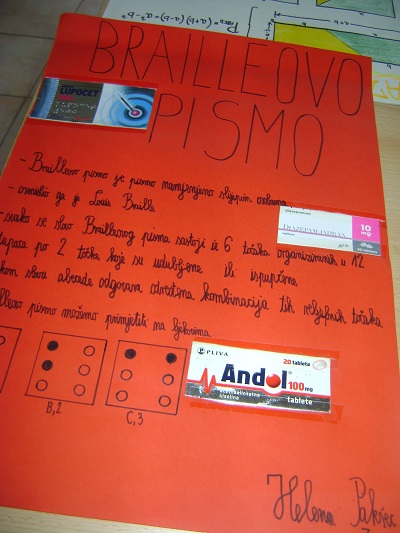 P = (a+b)·(a-b) = a²-b²
BRAILLEOVO
PISMO
LUPOCET
- Brailleovo pismo je pismo namjenjeno slijepim osobama
- osmislio ga je Louis Braille
- svako se slovo Brailleovog pisma sastoji iz 6 točaka organiziranih u 12
stupaca po 2 točke koje su udubljene ili ispupčene
slovu abecede odgovara određena kombinacija tih reljefnih točaka
pismo možemo primjetiti na ljekovima
DIAZEPAM JADRAN
10
mg
PLIVA
20 tableta
Andol
100mg
acetilsalicilatna
kiselina
tablete
B,2
C,3
Helena